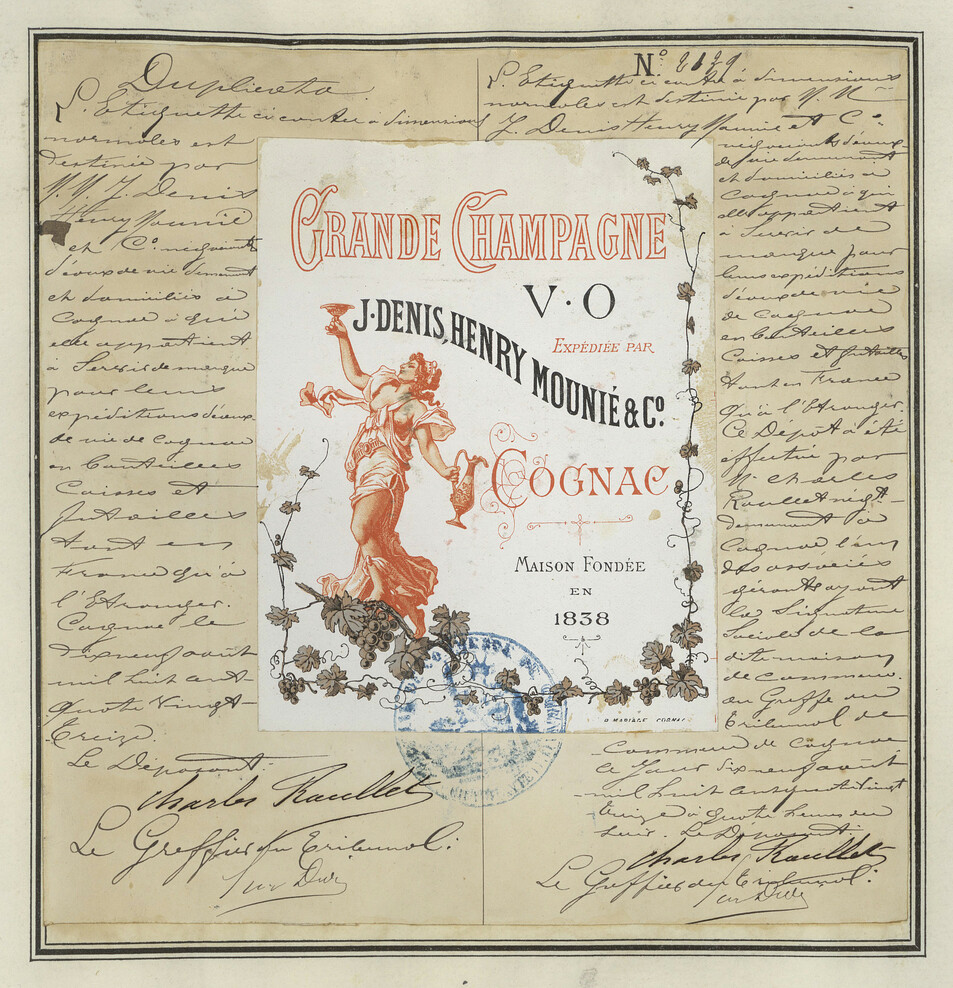 Duplicata.
L'Etiquette ci contre à dimensions
normales est
destinée par
M.M. J. Denis
Henry Mounié
et Co. négociants
d'eaux de vie demeurant
et domiciliés à
Cognac à qui
elle appartient
à Servir de marque
pour leurs
expéditions d'eaux
de vie de Cognac
en bouteilles
Caisses et
futailles
tant en
France qu'à
l'Etranger.
Cognac le
dix neuf août
mil huit cent
quatre Vingt
Treize.
Le Déposant:
Charles Raullet
Le Greffier du Tribunal:
GRANDE CHAMPAGNE
V.O
EXPÉDIÉE PAR
J. DENIS, HENRY MOUNIÉ & Co.
COGNAC
MAISON FONDÉE
EN
1838
No. 2139
L'Etiquette ci contre à dimensions
normales est destinée par M. M
J. Denis Henry Mounié et Co.
négociants d'eaux
de vie demeurant
et domiciliés à
Cognac à qui
elle appartient
à Servir de
marque pour
leurs expéditions
d'eaux de vie
de Cognac
en bouteilles
Caisses et futailles
tant en France
qu'à l'Etranger.
Ce Dépôt a été
effectué par
M. Charles
Raullet négt
demeurant à
Cognac l'un
des associés
gérants ayant
la Signature
Sociale de la
dite maison
de commerce.
au Greffe du
Tribunal de
Commerce de Cognac
ce Jour dix neuf août
mil huit cent quatre vingt
treize à quatre heures du
soir. Le Déposant
Charles Raullet
Le Greffier du Tribunal: